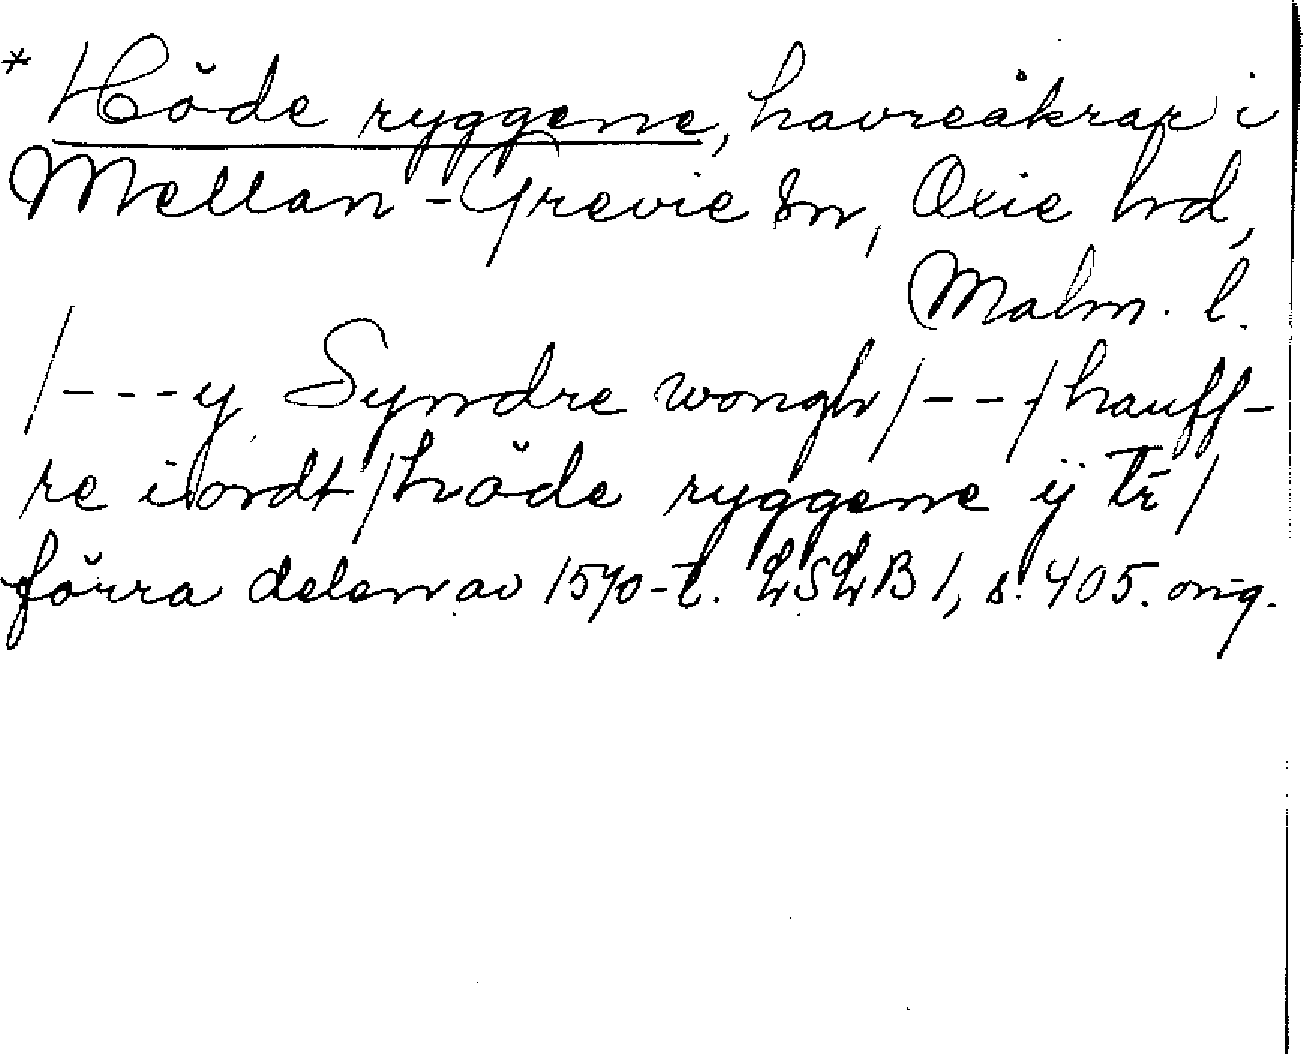 * Höde ryggene, havreåkrar i
Mellan-Grevie sn, Oxie hd,
Malm. l.
/---y Syndre wongh/--/hauff-
re iordt/höde ryggene ij tr/
förra delen av 1570-t. LSLB 1, s. 405. orig.